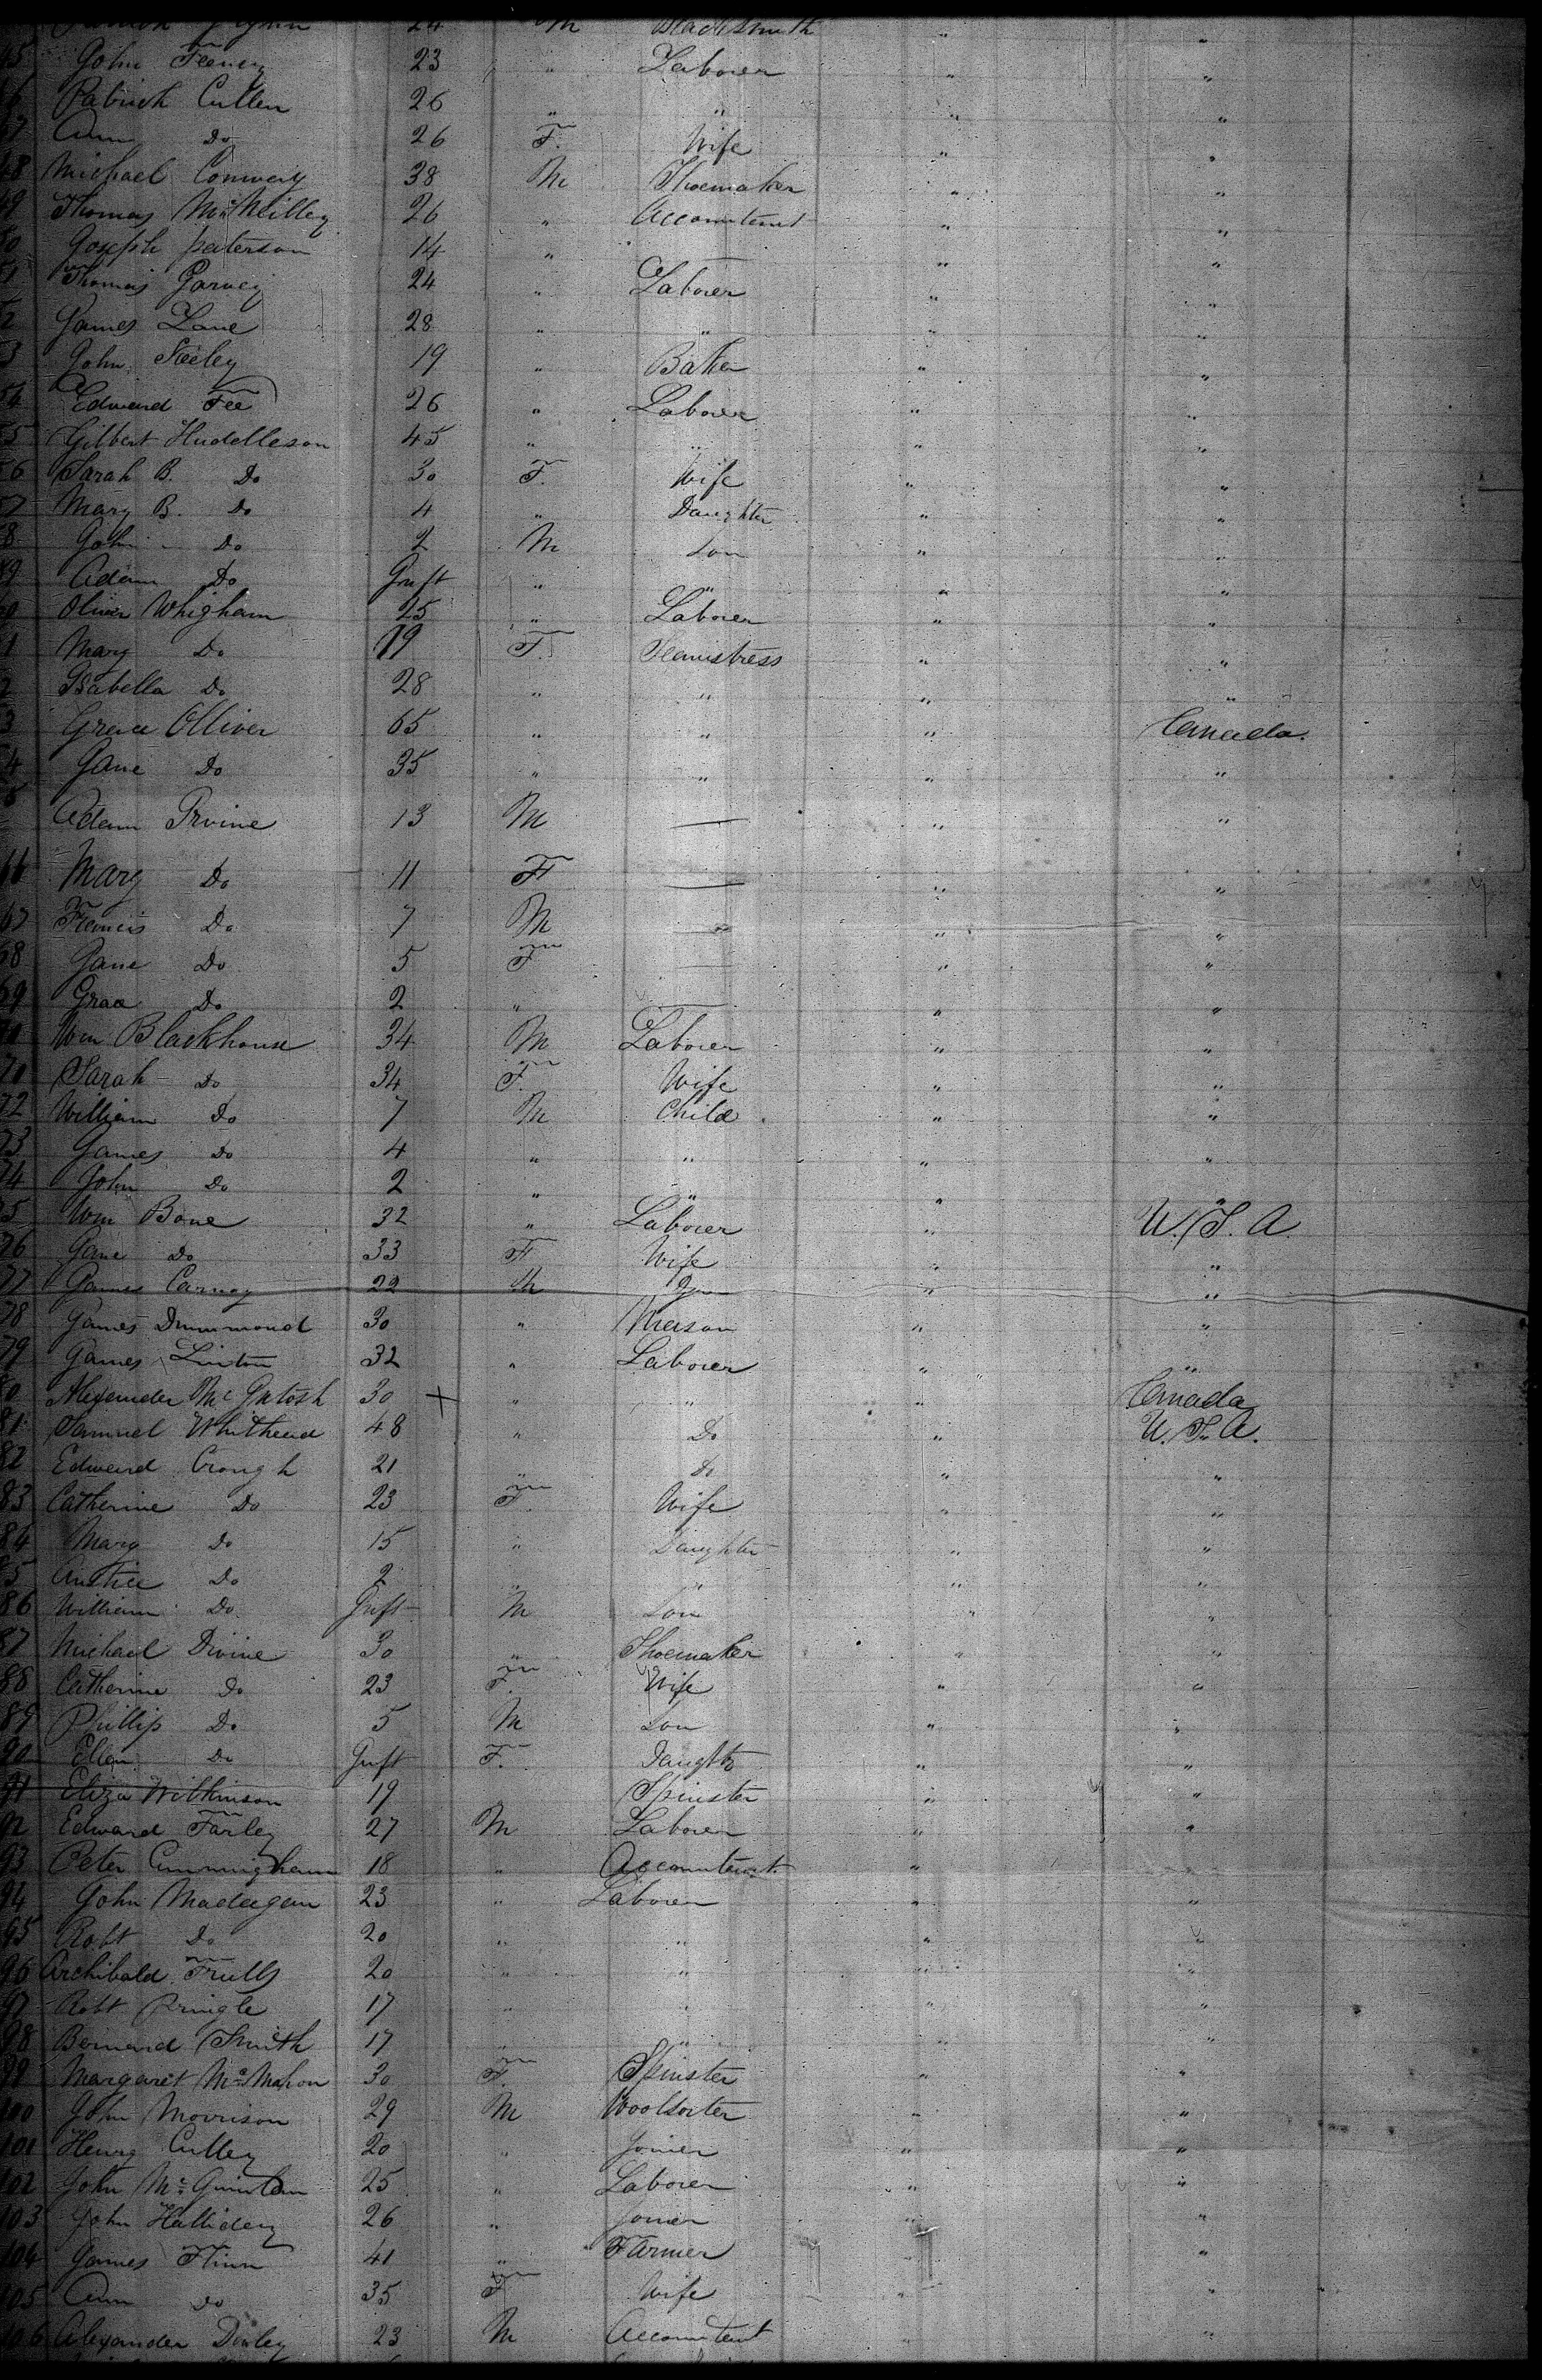 24 M Blacksmith " "
45 John Feeney 23 " Laborer " "
46 Patrick Cullen 26 " " " "
47 Ann Do 26 F. Wife " "
48 Michael Conway 38 M Shoemaker " "
49 Thomas McNeilley 26 " Accountant " "
50 Joseph paterson 14 " — " "
51 Thomas Garvey 24 " Laborer " "
52 James Lane 28 " " " "
53 John Steeley 19 " Baker " "
54 Edward Fee 26 " Laborer " "
55 Gilbert Hudelleson 45 " " " "
56 Sarah B. Do 30 F. Wife " "
57 Mary B. Do 4 " Daughter " "
58 John Do 2 M Son " "
59 Adam Do Inft " " " "
60 Oliver Whigham 25 " Laborer " "
61 Mary Do 19 F. Seamstress " "
62 Isabella Do 28 " " " "
63 Grace Olliver 65 " " " Canada.
64 Jane Do 35 " " " "
65 Adam Irvine 13 M — " "
66 Mary Do 11 F — " "
67 Francis Do 7 M — " "
68 Jane Do 5 F — " "
69 Grace Do 2 " — " "
70 Wm Blackhouse 34 M Laborer " "
71 Sarah Do 34 F. Wife " "
72 William Do 7 M Child " "
73 James Do 4 " " " "
74 John Do 2 " " " "
75 Wm Bone 32 " Laborer " U. S. A.
76 Jane Do 33 F Wife " "
77 James Carney 22 M " "
78 James Drummond 30 " Mason " "
79 James Linton 32 " Laborer " "
80 Alexander McIntosh 30 + " " " Canada
81 Samuel Whithead 48 " Do " U. S. A.
82 Edward Crough 21 " Do " "
83 Catherine Do 23 F. Wife " "
84 Mary Do 15 " Daughter " "
85 Do 2 " " " "
86 William Do Inft M Son " "
87 Michael Divine 30 " Shoemaker " "
88 Catherine Do 23 F. Wife " "
89 Phillip Do 5 M Son " "
90 Ellen Do Inft F. Daughtr " "
91 Eliza Wilkinson 19 " Spinster " "
92 Edward Farley 27 M Laborer " "
93 Peter Cunningham 18 " Accountant " "
94 John Madagan 23 " Laborer " "
95 Robt Do 20 " " " "
96 Archibald Trulls 20 " " " "
97 Robt Pringle 17 " " " "
98 Bernard Smith 17 " " " "
99 Margaret McMahon 30 F. Spinster " "
100 John Morrison 29 M Woolsorter " "
101 Henry Culley 20 " Joiner " "
102 John McQuinlan 25 " Laborer " "
103 John Halliday 26 " Joiner " "
104 James Flinn 41 " Farmer " "
105 Ann do 35 F Wife " "
106 Alexander Donley 23 M Accountant " "